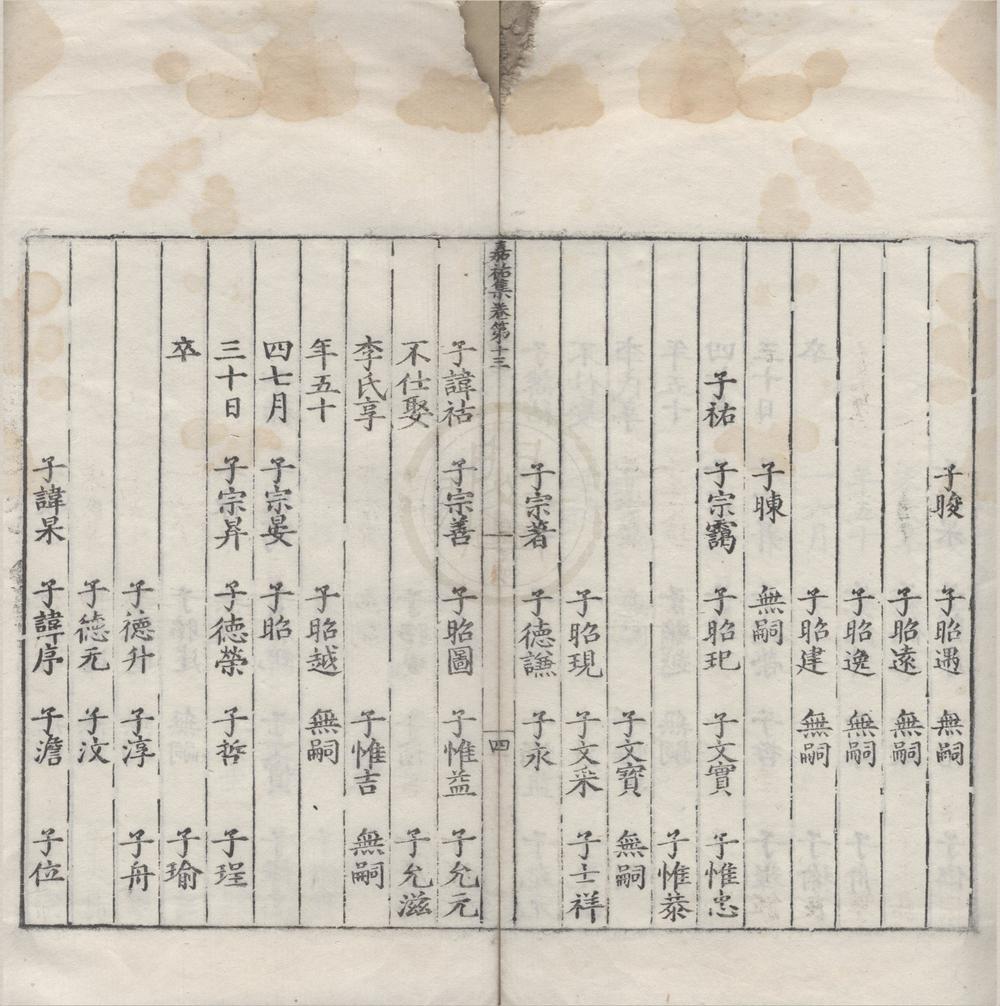 子晙　子昭遇　無嗣
子昭遠　無嗣
子昭逸　無嗣
子昭建　無嗣
子暕　無嗣
子祐　子宗靄　子昭玘　子文實　子惟忠
子惟恭
子文寶　無嗣
子昭現　子文采　子士祥
子宗著　子德謙　子永
嘉祐集卷第十三　四
子諱祜　子宗善　子昭圖　子惟益　子允元
不仕娶　子允滋
李氏享　子惟吉　無嗣
年五十　子昭越　無嗣
四七月　子宗晏　子昭
三十日　子宗昇　子德榮　子哲　子珵
卒　子瑜
子德升　子淳　子舟
子德元　子汶
子諱杲　子諱序　子澹　子位